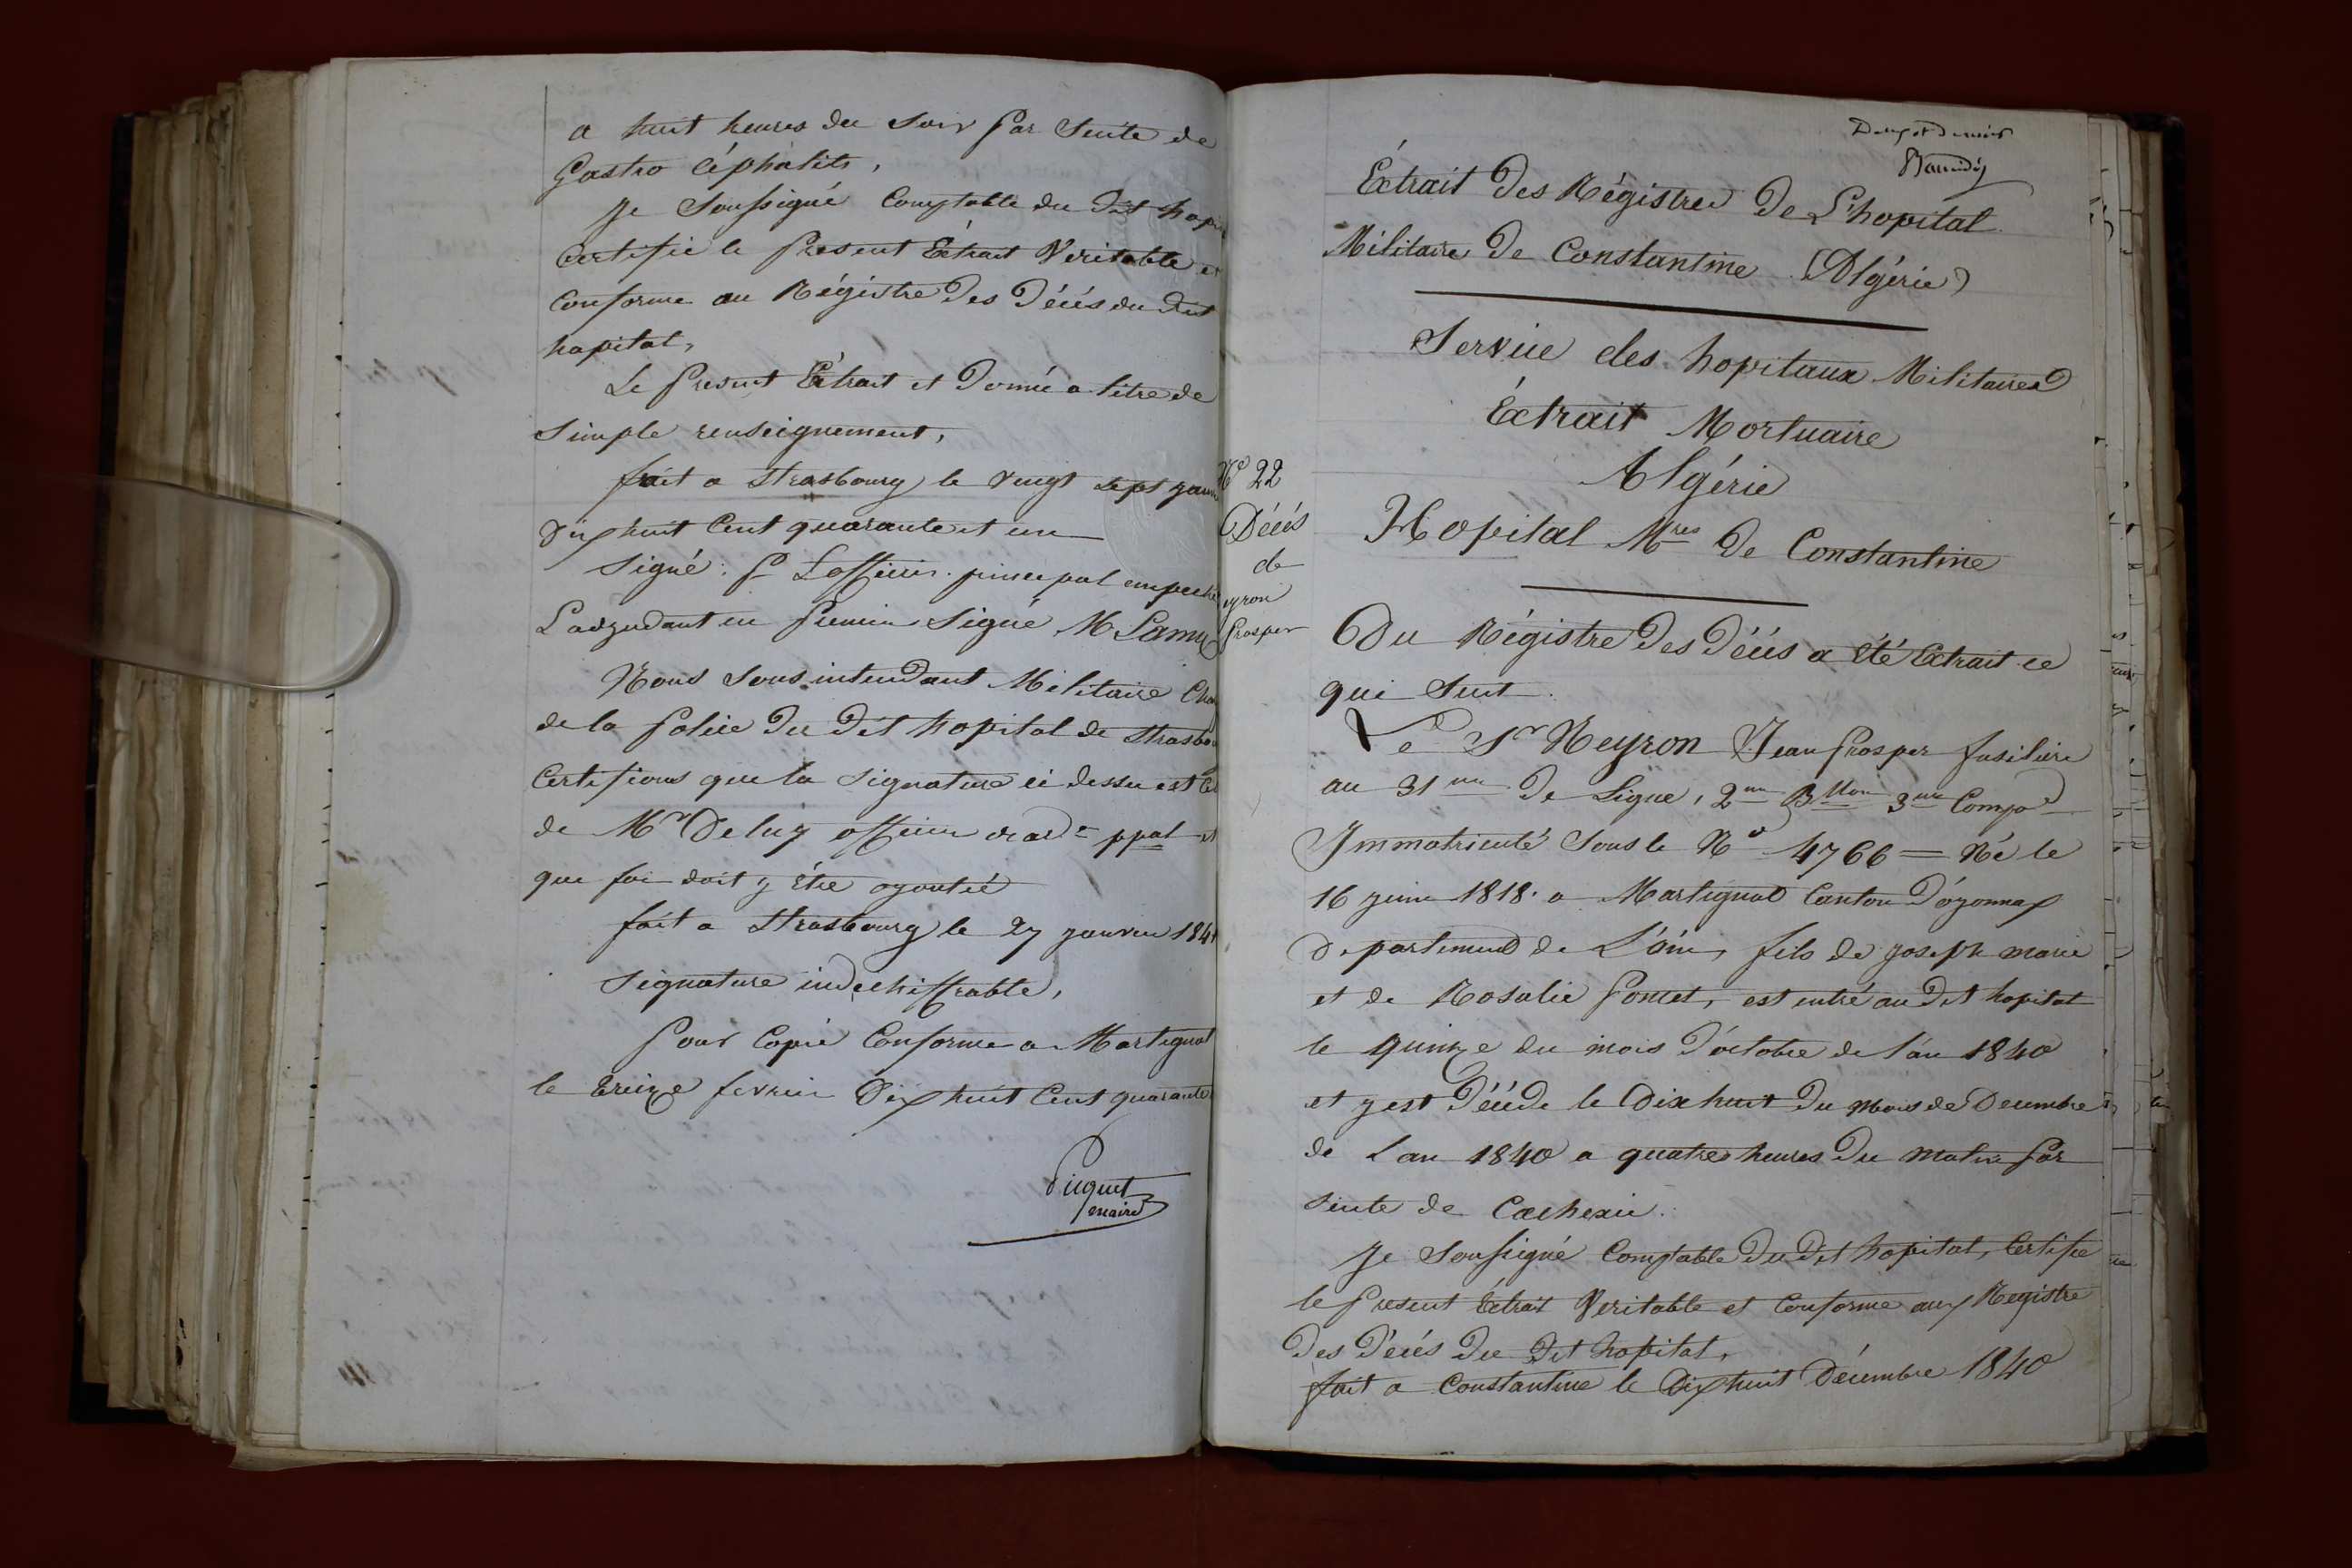 a huit heures du soir par suite de
Gastro Céphalits,
je soussigné Comptable du dit hopi
Certifie le present Extrait Veritable et
conforme au Régistre des Décés du dit
hopital,
Le present Extrait et donné a titre de
simple renseignement,
fait a Strasbourg le vingt sept janvi
dix huit cent quarante et un
Signé: Pr L'officier principal empeché
L'adjudant en premier Signé M Lamy
Nous sous intendant Militaire Cha
de la police du dit hopital de Strasbou
Certifions que la signature ci dessu est Ce
de Mr Deluz officier ppal et
que foi doit y étre ajoutée
fait a Strasbourg le 27 janvier 1841
signature indechiffrable,
pour Copie Conforme a Martignat
le treize fevrier dix huit cent quarante
Picquet
maire
Extrait des Régistres de L'hopital
Militaire de Constantine (Algérie)
Service des hopitaux Militaires
Extrait Mortuaire
Algérie
Hopital Mres de Constantine
No 22
Décés
de
eyron
Prosper
Du Régistre des Décés a été Extrait ce
qui suit.
Le Sr Neyron Jean Prosper fusilier
au 31me de Ligne, 2me Bllon 3me Compe
Immatriculé sous le No 4766 = Né le
16 juin 1818. a Martignat Canton d'oyonnax
departement de L'ain, fils de joseph marie
et de Rosalie Poncet, est entré au dit hopital
le quinze du mois d'octobre de l'an 1840
et y est décédé le dix huit du mois de Decembre
de L'an 1840 a quatres heures du matin par
suite de Cachexie.
je soussigné Comptable du dit hopital, Certifie
le present Extrait Veritable et conforme aux Registre
des Décés du dit hopital,
fait a Constantine le dix huit Décembre 1840